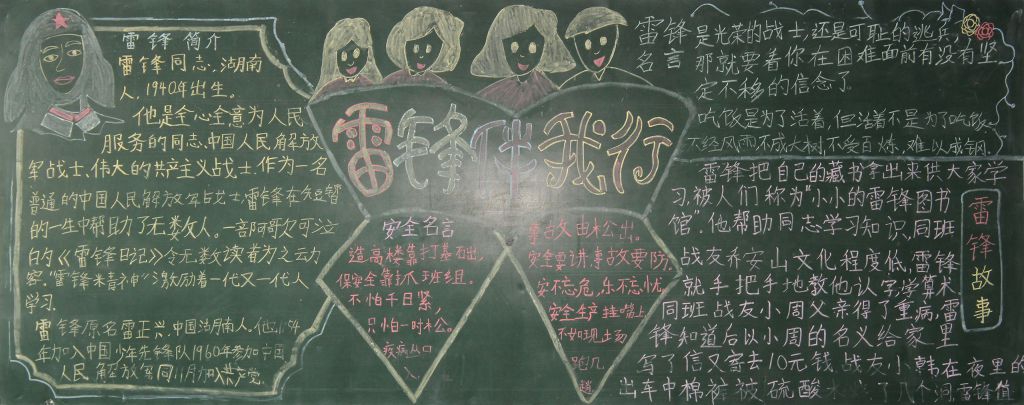 雷锋简介
雷锋同志,湖南
人,1940年出生。
他是全心全意为人民
服务的同志,中国人民解放
军战士、伟大的共产主义战士,作为一名
普通的中国人民解放军战士,雷锋在短暂
的一生中帮助了无数人。一部
的《雷锋日记》令无数读者为之
容。"雷锋精神"激励着一代又一代人
学习。
雷锋原名雷正兴,中国湖南人。他
年加入中国少年先锋队1960年参加中国
人民解放军同11月加入共产党。
雷锋伴我行
安全名言
造高楼靠打基础,
保安全靠抓班组。
不怕千日紧,
只怕一时松。
事故由松出。
安全要讲,事故要防,
安不忘危,乐不忘忧
安全生产挂嘴上
不如现场
跑几
趟
雷锋
名言
是光荣的战士,还是可耻的逃兵,
那就要看你在困难面前有没有坚
定不移的信念了。
吃饭是为了活着,但活着不是为了吃饭
不经风雨不成大树,不受百炼,难以成钢。
雷锋故事
雷锋把自己的藏书拿出来供大家学
习,被人们称为"小小的雷锋图书
馆"。他帮助同志学习知识,同班
战友乔安山文化程度低,雷锋
就手把手地教他认字,学算术
同班战友小周父亲得了重病,雷
锋知道后以小周的名义给家里
写了信又寄去10元钱,战友小韩在夜里的
出车中棉裤被硫酸水 了几个洞,雷锋值